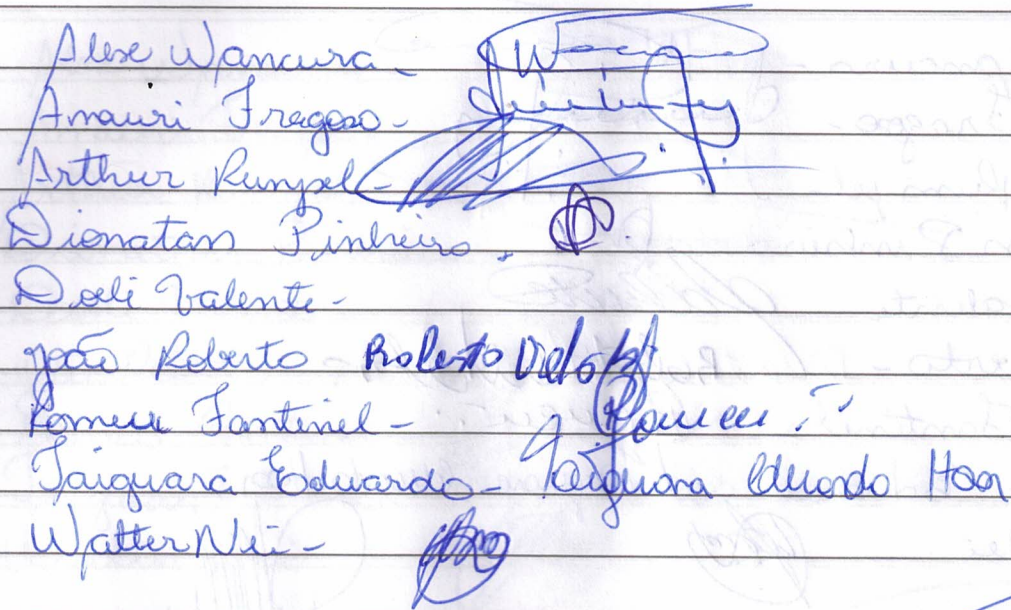 Alex Wancura -
Amauri Fragoso -
Arthur Rumpel -
Dionatan Pinheiro -
Doeli Valente -
João Roberto Roberto
Romeu Fantinel - Romeu
Taiguara Eduardo - Taiguara Eduardo Haar
Walter Nei -